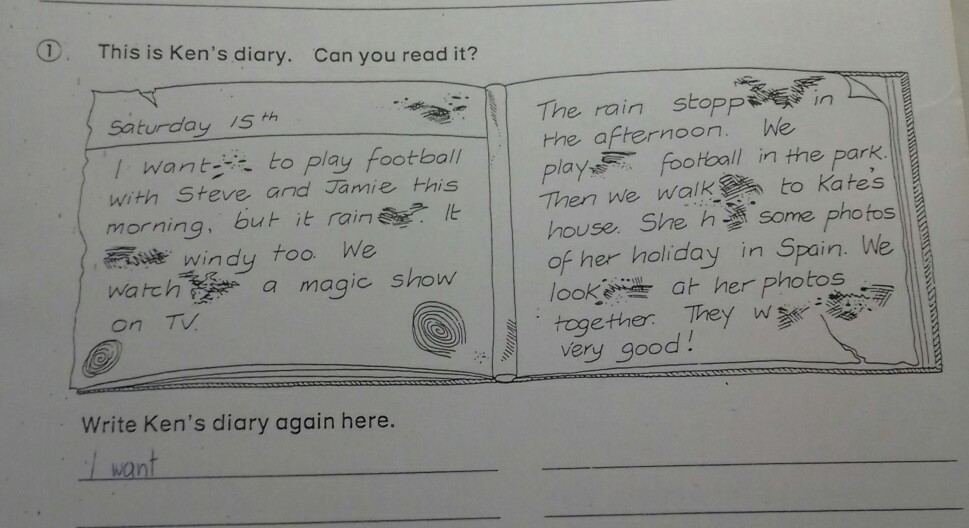 1. This is Ken's diary. Can you read it?
Saturday 15th
I want to play football
with Steve and Jamie this
morning, but it rain . It
windy too. We
watch a magic show
on TV.
The rain stopp in
the afternoon. We
play football in the park.
Then we walk to Kate's
house. She h some photos
of her holiday in Spain. We
look at her photos
together. They w
very good!
Write Ken's diary again here.
I want